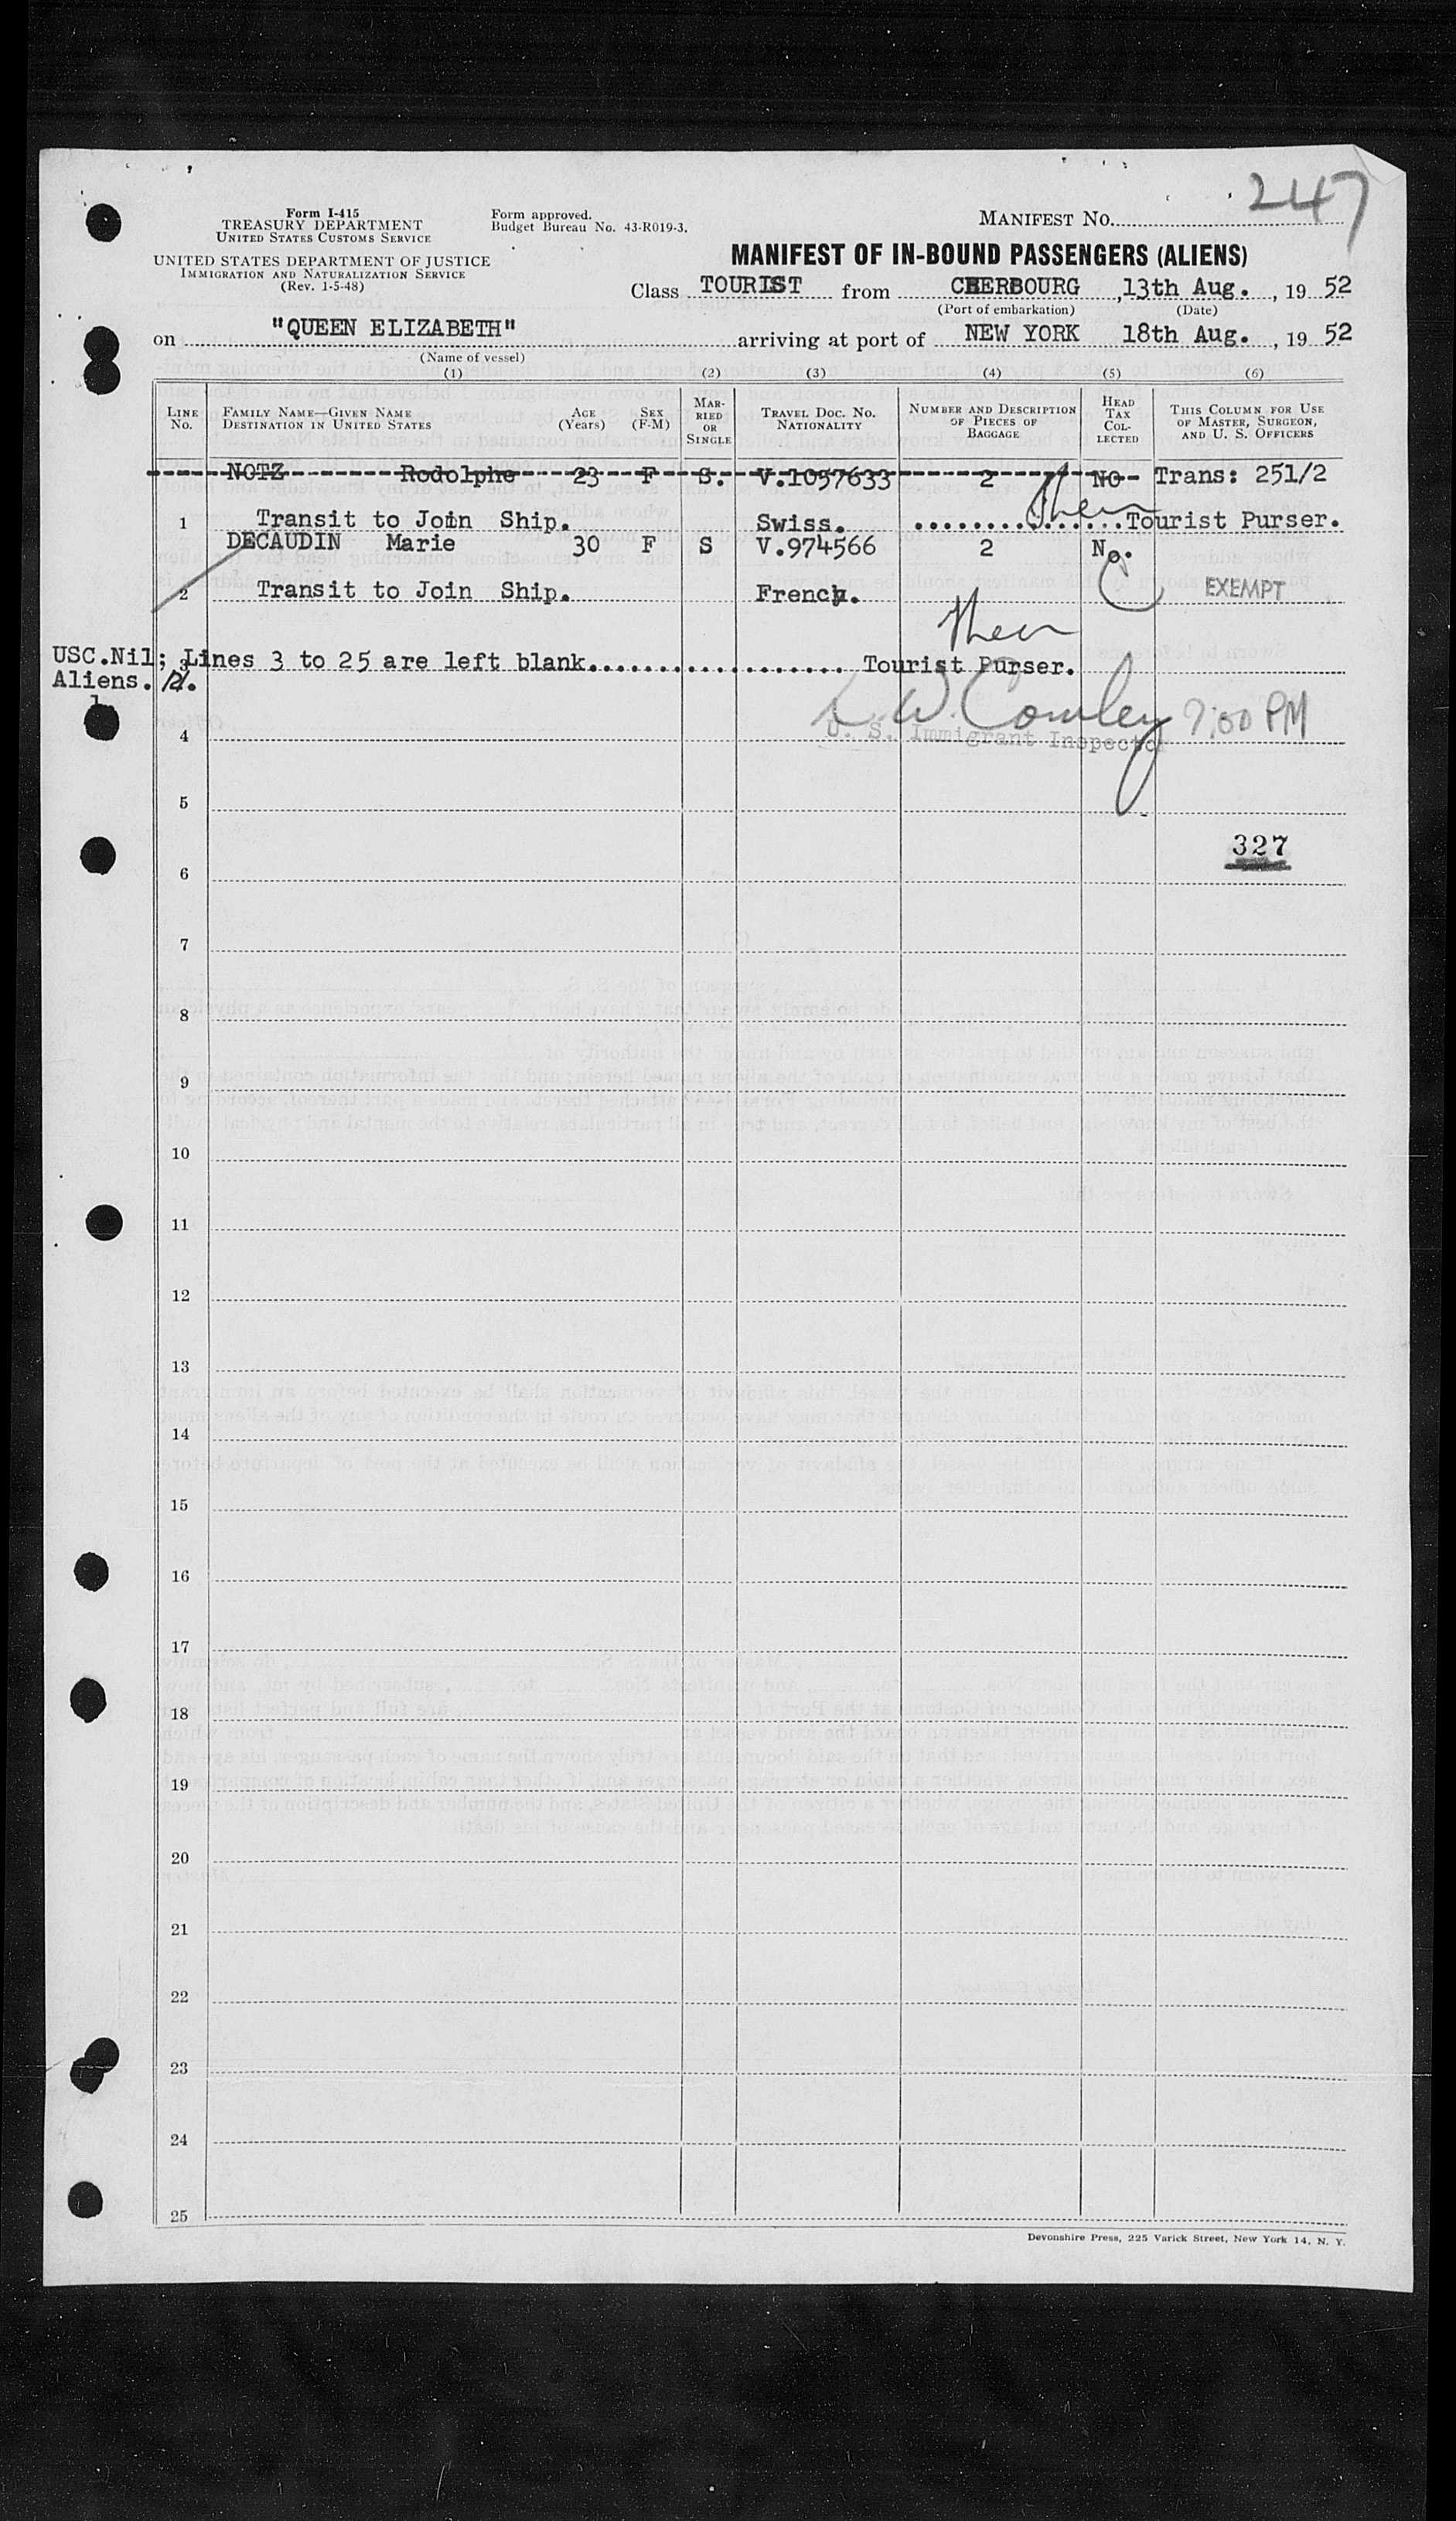 247
Form I-415
TREASURY DEPARTMENT
UNITED STATES CUSTOMS SERVICE
Form approved.
Budget Bureau No. 43-R019-3.
MANIFEST NO.
UNITED STATES DEPARTMENT OF JUSTICE
IMMIGRATION AND NATURALIZATION SERVICE
(Rev. 1-5-48)
MANIFEST OF IN-BOUND PASSENGERS (ALIENS)
Class TOURIST from CHERBOURG, 13th Aug., 1952
(Port of embarkation) (Date)
on "QUEEN ELIZABETH" arriving at port of NEW YORK 18th Aug., 1952
(Name of vessel)
(1) (2) (3) (4) (5) (6)
LINE No. FAMILY NAME—GIVEN NAME DESTINATION IN UNITED STATES AGE (Years) SEX (F-M) MARRIED OR SINGLE TRAVEL DOC. NO. NATIONALITY NUMBER AND DESCRIPTION OF PIECES OF BAGGAGE HEAD TAX COLLECTED THIS COLUMN FOR USE OF MASTER, SURGEON, AND U. S. OFFICERS
NOTZ Rodolphe 23 F S. V.1057633 2 NO Trans: 251/2
1 Transit to Join Ship. Swiss. ...............Tourist Purser.
DECAUDIN Marie 30 F S V.974566 2 No.
2 Transit to Join Ship. French. EXEMPT
USC.Nil; 3 Lines 3 to 25 are left blank.................. Tourist Purser.
Aliens. 2.
1
L. W. Cowley 7:00 PM
4 U. S. Immigrant Inspector
5
327
6
7
8
9
10
11
12
13
14
15
16
17
18
19
20
21
22
23
24
25
Devonshire Press, 225 Varick Street, New York 14, N. Y.